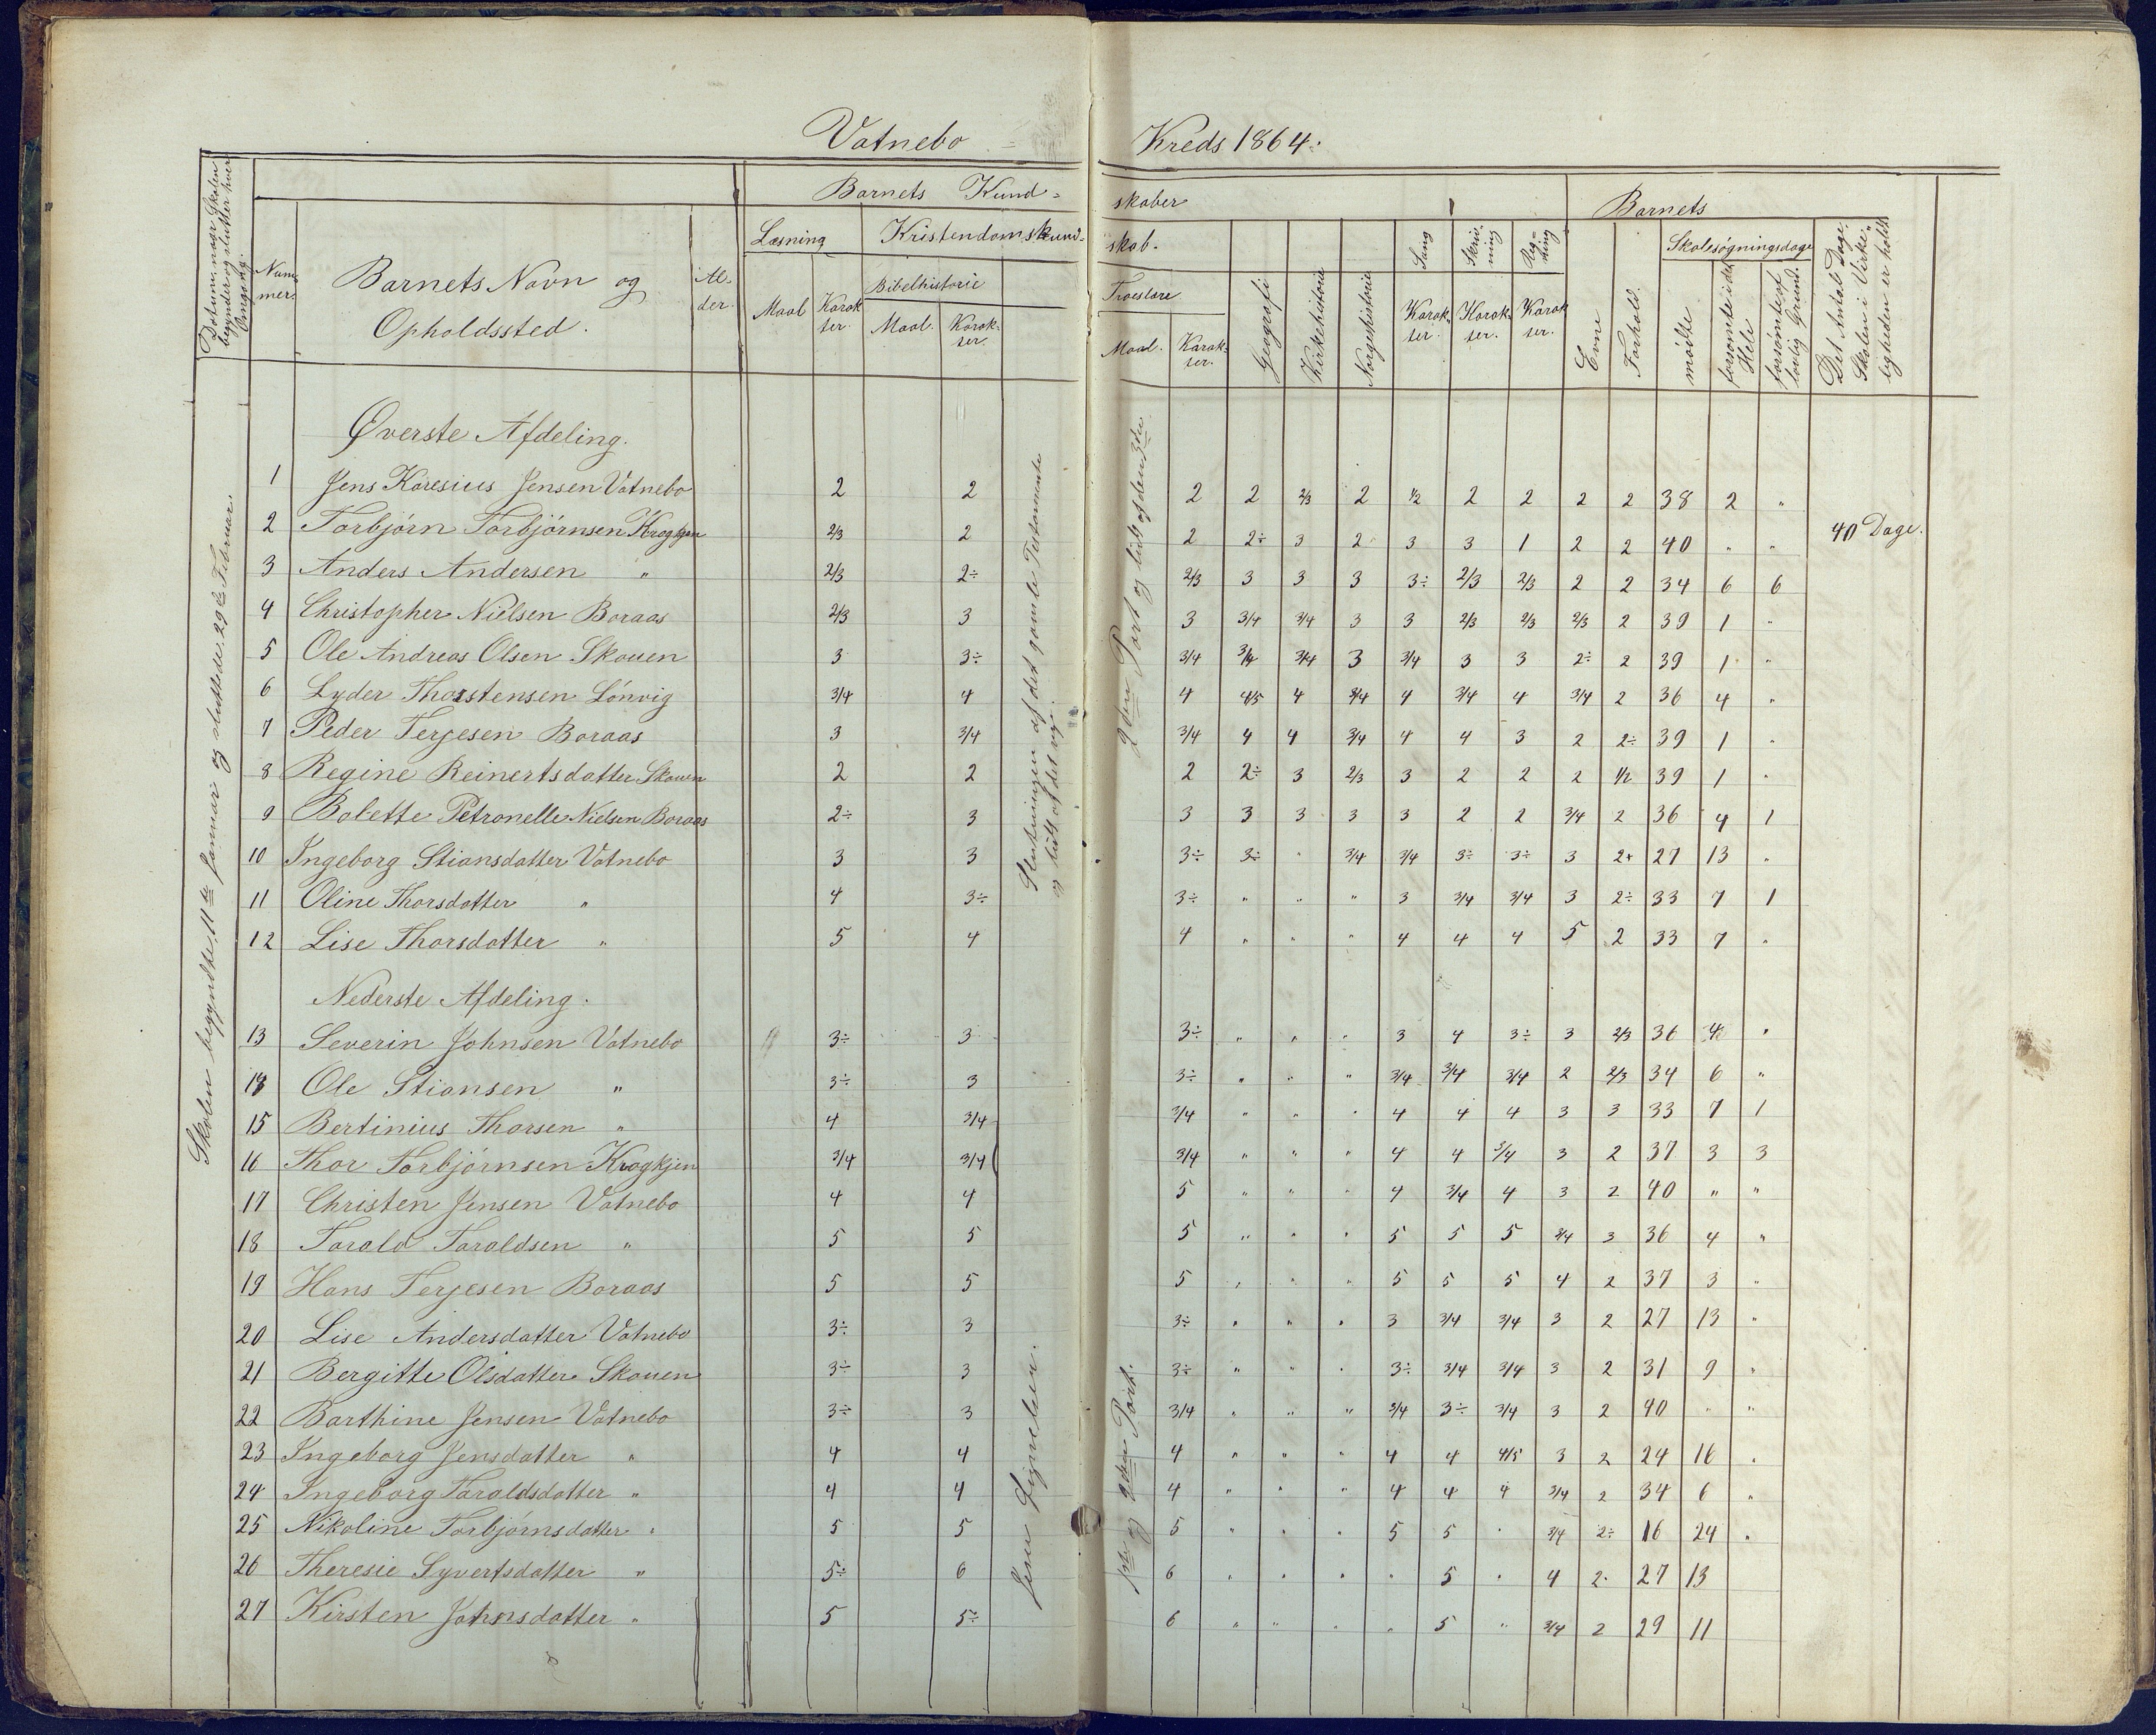 Vatnebo Kreds 1864.
Datum, naar Skolen
begynder og slutter hver
Omgang.
Num-
mer.
Barnets Navn og
Opholdssted.
Al-
der.
Barnets Kund-
skaber
Barnets
Læsning
Kristendomskund-
skab.
Maal
Karak
ter.
Bibelhistorie
Maal.
Karak-
ter.
Troeslære
Maal.
Karak-
ter.
Geografi
Kirkehistorie
Norgeshistorie
Sang
Karak-
ter.
Skriv-
ning
Karak-
ter.
Reg-
ning
Karak
ter.
Evne
Forhold.
Skolesøgningsdage
mødte
forsømte i det
Hele
forsømte af
lovlig Grund.
Det Antal Dage,
Skolen i Virke-
ligheden er holdt
Skolen begyndte 11te Januar og sluttede 29de Februar.
Øverste Afdeling.
1 Jens Karesius Jensen Vatnebo 2 2 2 2 2/3 2 1/2 2 2 2 2 38 2 "
2 Torbjørn Torbjørnsen Krogkjen 2/3 2 2 2÷ 3 2 3 3 1 2 2 40 " " 40 Dage.
3 Anders Andersen " 2/3 2÷ 2/3 3 3 3 3÷ 2/3 2/3 2 2 34 6 6
4 Christopher Nielsen Boraas 2/3 3 3 3/4 3/4 3 3 2/3 2/3 2/3 2 39 1 "
5 Ole Andreas Olsen Skouen 3 3÷ 3/4 3/4 3/4 3 3/4 3 3 2÷ 2 39 1 "
6 Lyder Thorstensen Lønvig 3/4 4 4 4/5 4 3/4 4 3/4 4 3/4 2 36 4 "
7 Peder Terjesen Boraas 3 3/4 3/4 4 4 3/4 4 4 3 2 2÷ 39 1 "
8 Regine Reinertsdatter Skouen 2 2 2 2÷ 3 2/3 3 2 2 2 1/2 39 1 "
9 Bolette Petronelle Nielsen Boraas 2÷ 3 3 3 3 3 3 2 2 3/4 2 36 4 1
10 Ingeborg Stiansdatter Vatnebo 3 3 3÷ 3÷ " 3/4 3/4 3÷ 3÷ 3 2+ 27 13 "
11 Oline Thorsdatter " 4 3÷ 3÷ " " " 3 3/4 3/4 3 2÷ 33 7 1
12 Lise Thorsdatter " 5 4 4 " " " 4 4 4 5 2 33 7 "
Slutningen af det gamle Testamente
og lidt af det nye.
2den Part og lidt af den 3die
Nederste Afdeling.
13 Severin Johnsen Vatnebo 3÷ 3 3÷ " " " 3 4 3÷ 3 2/3 36 4 "
18 Ole Stiansen " 3÷ 3 3÷ " " " 3/4 3/4 3/4 2 2/3 34 6 "
15 Bertinius Thorsen " 4 3/4 3/4 " " " 4 4 4 3 3 33 7 1
16 Thor Torbjørnsen Krogkjen 3/4 3/4 3/4 " " " 4 4 3/4 3 2 37 3 3
17 Christen Jensen Vatnebo 4 4 5 " " " 4 3/4 4 3 2 40 " "
18 Tarald Taraldsen " 5 5 5 " " " 5 5 5 3/4 3 36 4 "
19 Hans Terjesen Boraas 5 5 5 " " " 5 5 5 4 2 37 3 "
20 Lise Andersdatter Vatnebo 3÷ 3 3÷ " " " 3 3/4 3/4 3 2 27 13 "
21 Bergitte Olsdatter Skouen 3÷ 3 3÷ " " " 3÷ 3/4 3/4 3 2 31 9 "
22 Barthine Jensen Vatnebo 3÷ 3 3/4 " " " 3/4 3÷ 3/4 3 2 40 " "
23 Ingeborg Jensdatter " 4 4 4 " " " 4 4 4/5 3 2 24 16 "
24 Ingeborg Taraldsdatter " 4 4 4 " " " 4 4 4 3/4 2 34 6 "
25 Nikoline Torbjørnsdatter " 5 5 5 " " " 5 5 " 3/4 2÷ 16 24 "
26 Theresie Syvertsdatter " 5÷ 6 6 " " " " 5 " 4 2 27 13
27 Kirsten Johnsdatter " 5 5÷ 6 " " " " 5 " 3/4 2 29 11
1ste og 2den Part.